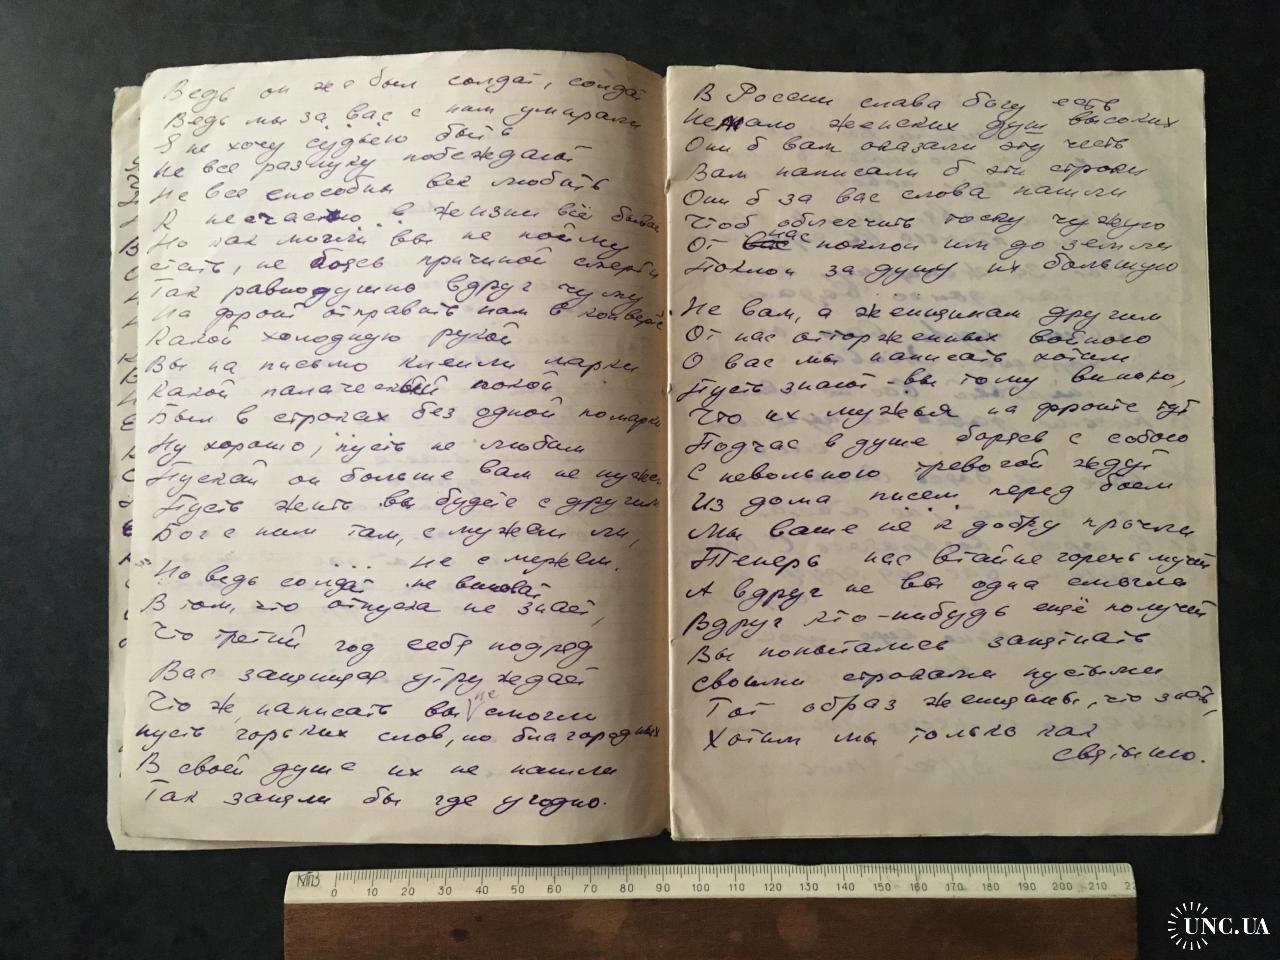 Ведь он же был солдат, солдат
Ведь мы за вас с ним умирали
Я не хочу судьёю быть
Не все разлуку побеждают
Не все способны век любить
К несчастью в жизни всё бывае
Но как могли вы не пойму
Стать, не боясь причиной смерти
Так равнодушно вдруг чуму
На фронт отправить нам в конверте
Какой холодную рукой
Вы на письмо клеили марки
Какой палаческий покой
Был в строках без одной помарки
Ну хорошо, пусть не любим
Пускай он больше вам не нужен
Пусть жить вы будете с другим
Бог с ним там, с мужем ли,
... не с мужем.
Но ведь солдат не виноват
В том, что отпуска не знает,
Что третий год себя подряд
Вас защищая утруждает
Что ж, написать вы не смогли
пусть горьких слов, но благородных
В своей душе их не нашли
Так заняли бы где угодно.
В России слава богу есть
Немало женских душ высоких
Они б вам оказали эту честь
Вам написали б эти строки
Они б за вас слова нашли
Чтоб облегчить тоску чужую
От нас поклон им до земли
Поклон за душу их большую
Не вам, а женщинам другим
От нас отторженных войною
О вас мы написать хотим
Пусть знают - вы тому виною,
Что их мужья на фронте тут
Подчас в душе борясь с собою
С невольною тревогой ждут
Из дома писем перед боем
Мы ваше не к добру прочли
Теперь нас втайне горечь мучит
А вдруг не вы одна смогла
Вдруг кто-нибудь ещё получит
Вы попытались запятнать
своими строками пустыми
Тот образ женщины, что знать,
Хотим мы только как
святыню.
0 10 20 30 40 50 60 70 80 90 100 110 120 130 140 150 160 170 180 190 200 210 22
UNC.UA